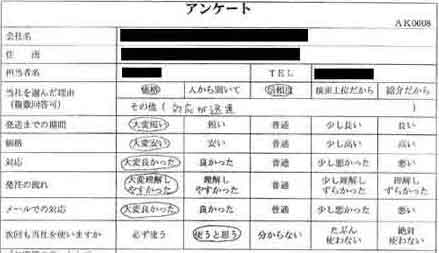 アンケート
AK0608
会社名
住 所
担当者名 TEL
当社を選んだ理由 価格 人から聞いて 信頼度 検索上位だから 紹介だから
(複数回答可) その他( 対応が迅速 )
発送までの期間 大変短い 短い 普通 少し長い 長い
価格 大変安い 安い 普通 少し高い 高い
対応 大変良かった 良かった 普通 少し悪かった 悪い
発注の流れ 大変理解しやすかった 理解しやすかった 普通 少し理解しずらかった 理解しずらかった
メールでの対応 大変良かった 良かった 普通 少し悪かった 悪い
次回も当社を使いますか 必ず使う 使うと思う 分からない たぶん使わない 絶対使わない